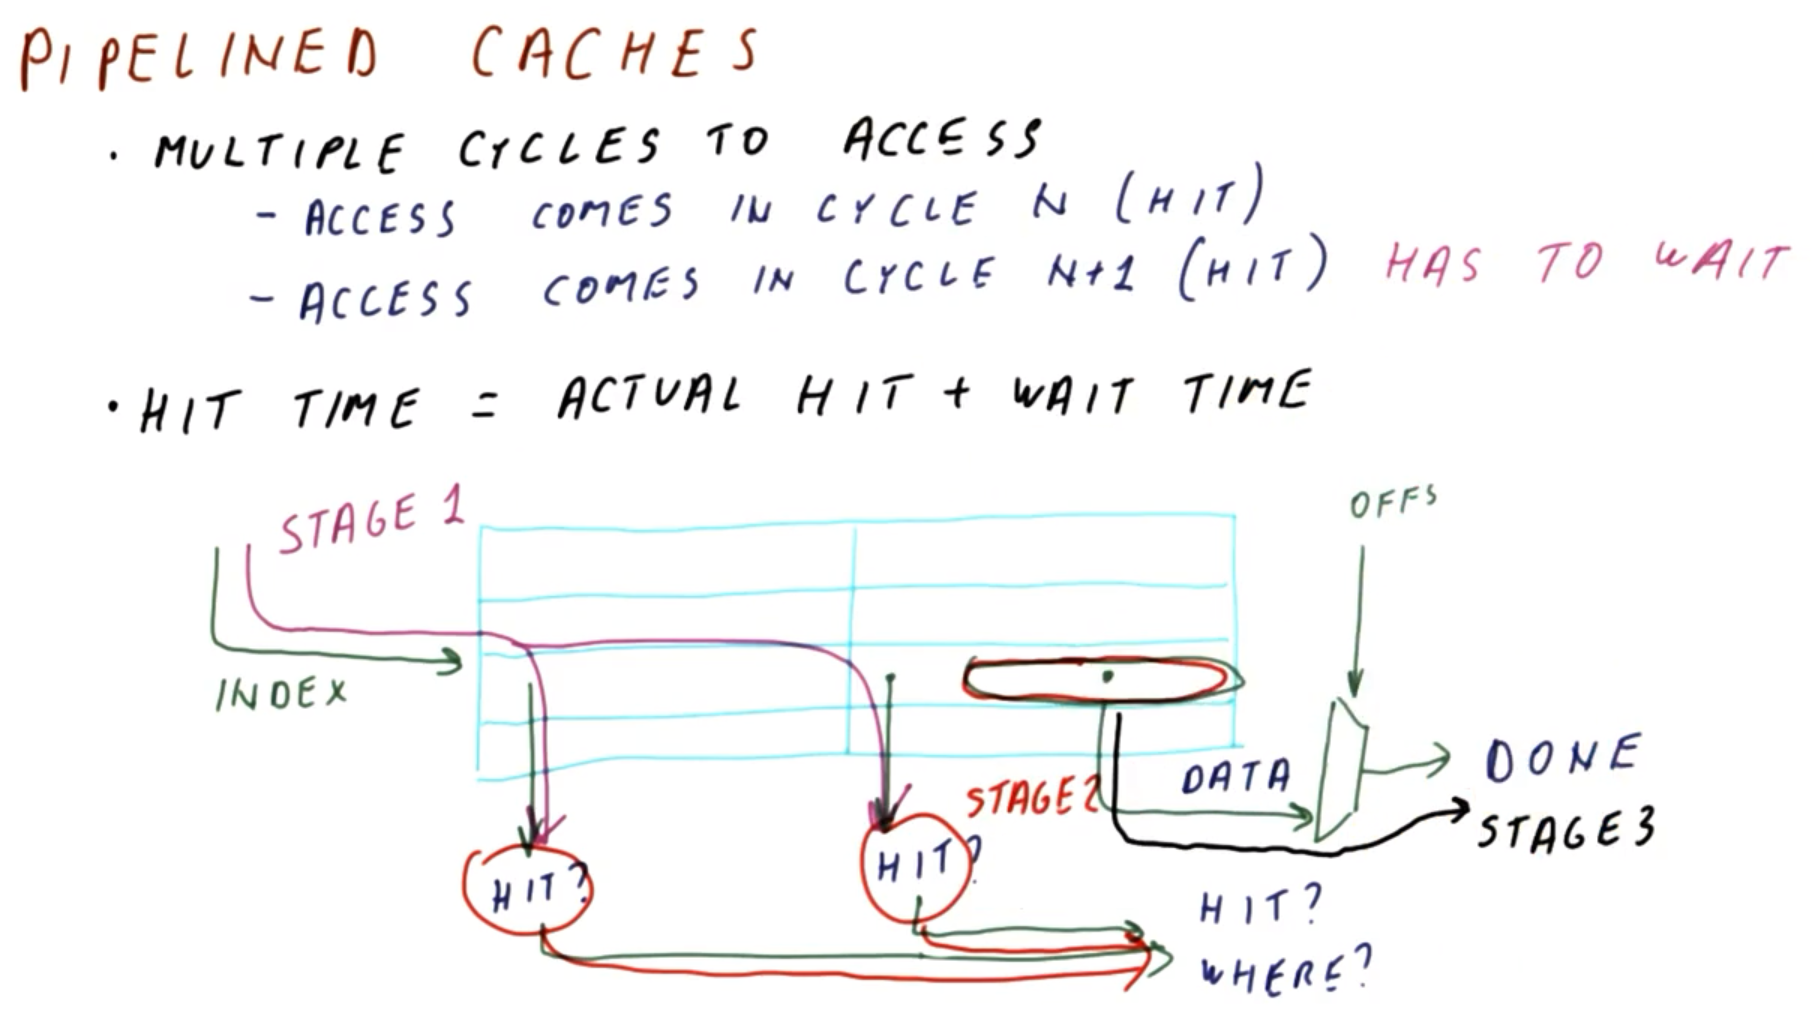 PIPELINED CACHES
• MULTIPLE CYCLES TO ACCESS
- ACCESS COMES IN CYCLE N (HIT)
- ACCESS COMES IN CYCLE N+1 (HIT) HAS TO WAIT
• HIT TIME = ACTUAL HIT + WAIT TIME
STAGE 1
OFFS
INDEX
STAGE 2
DATA
DONE
STAGE 3
HIT?
HIT?
HIT?
WHERE?